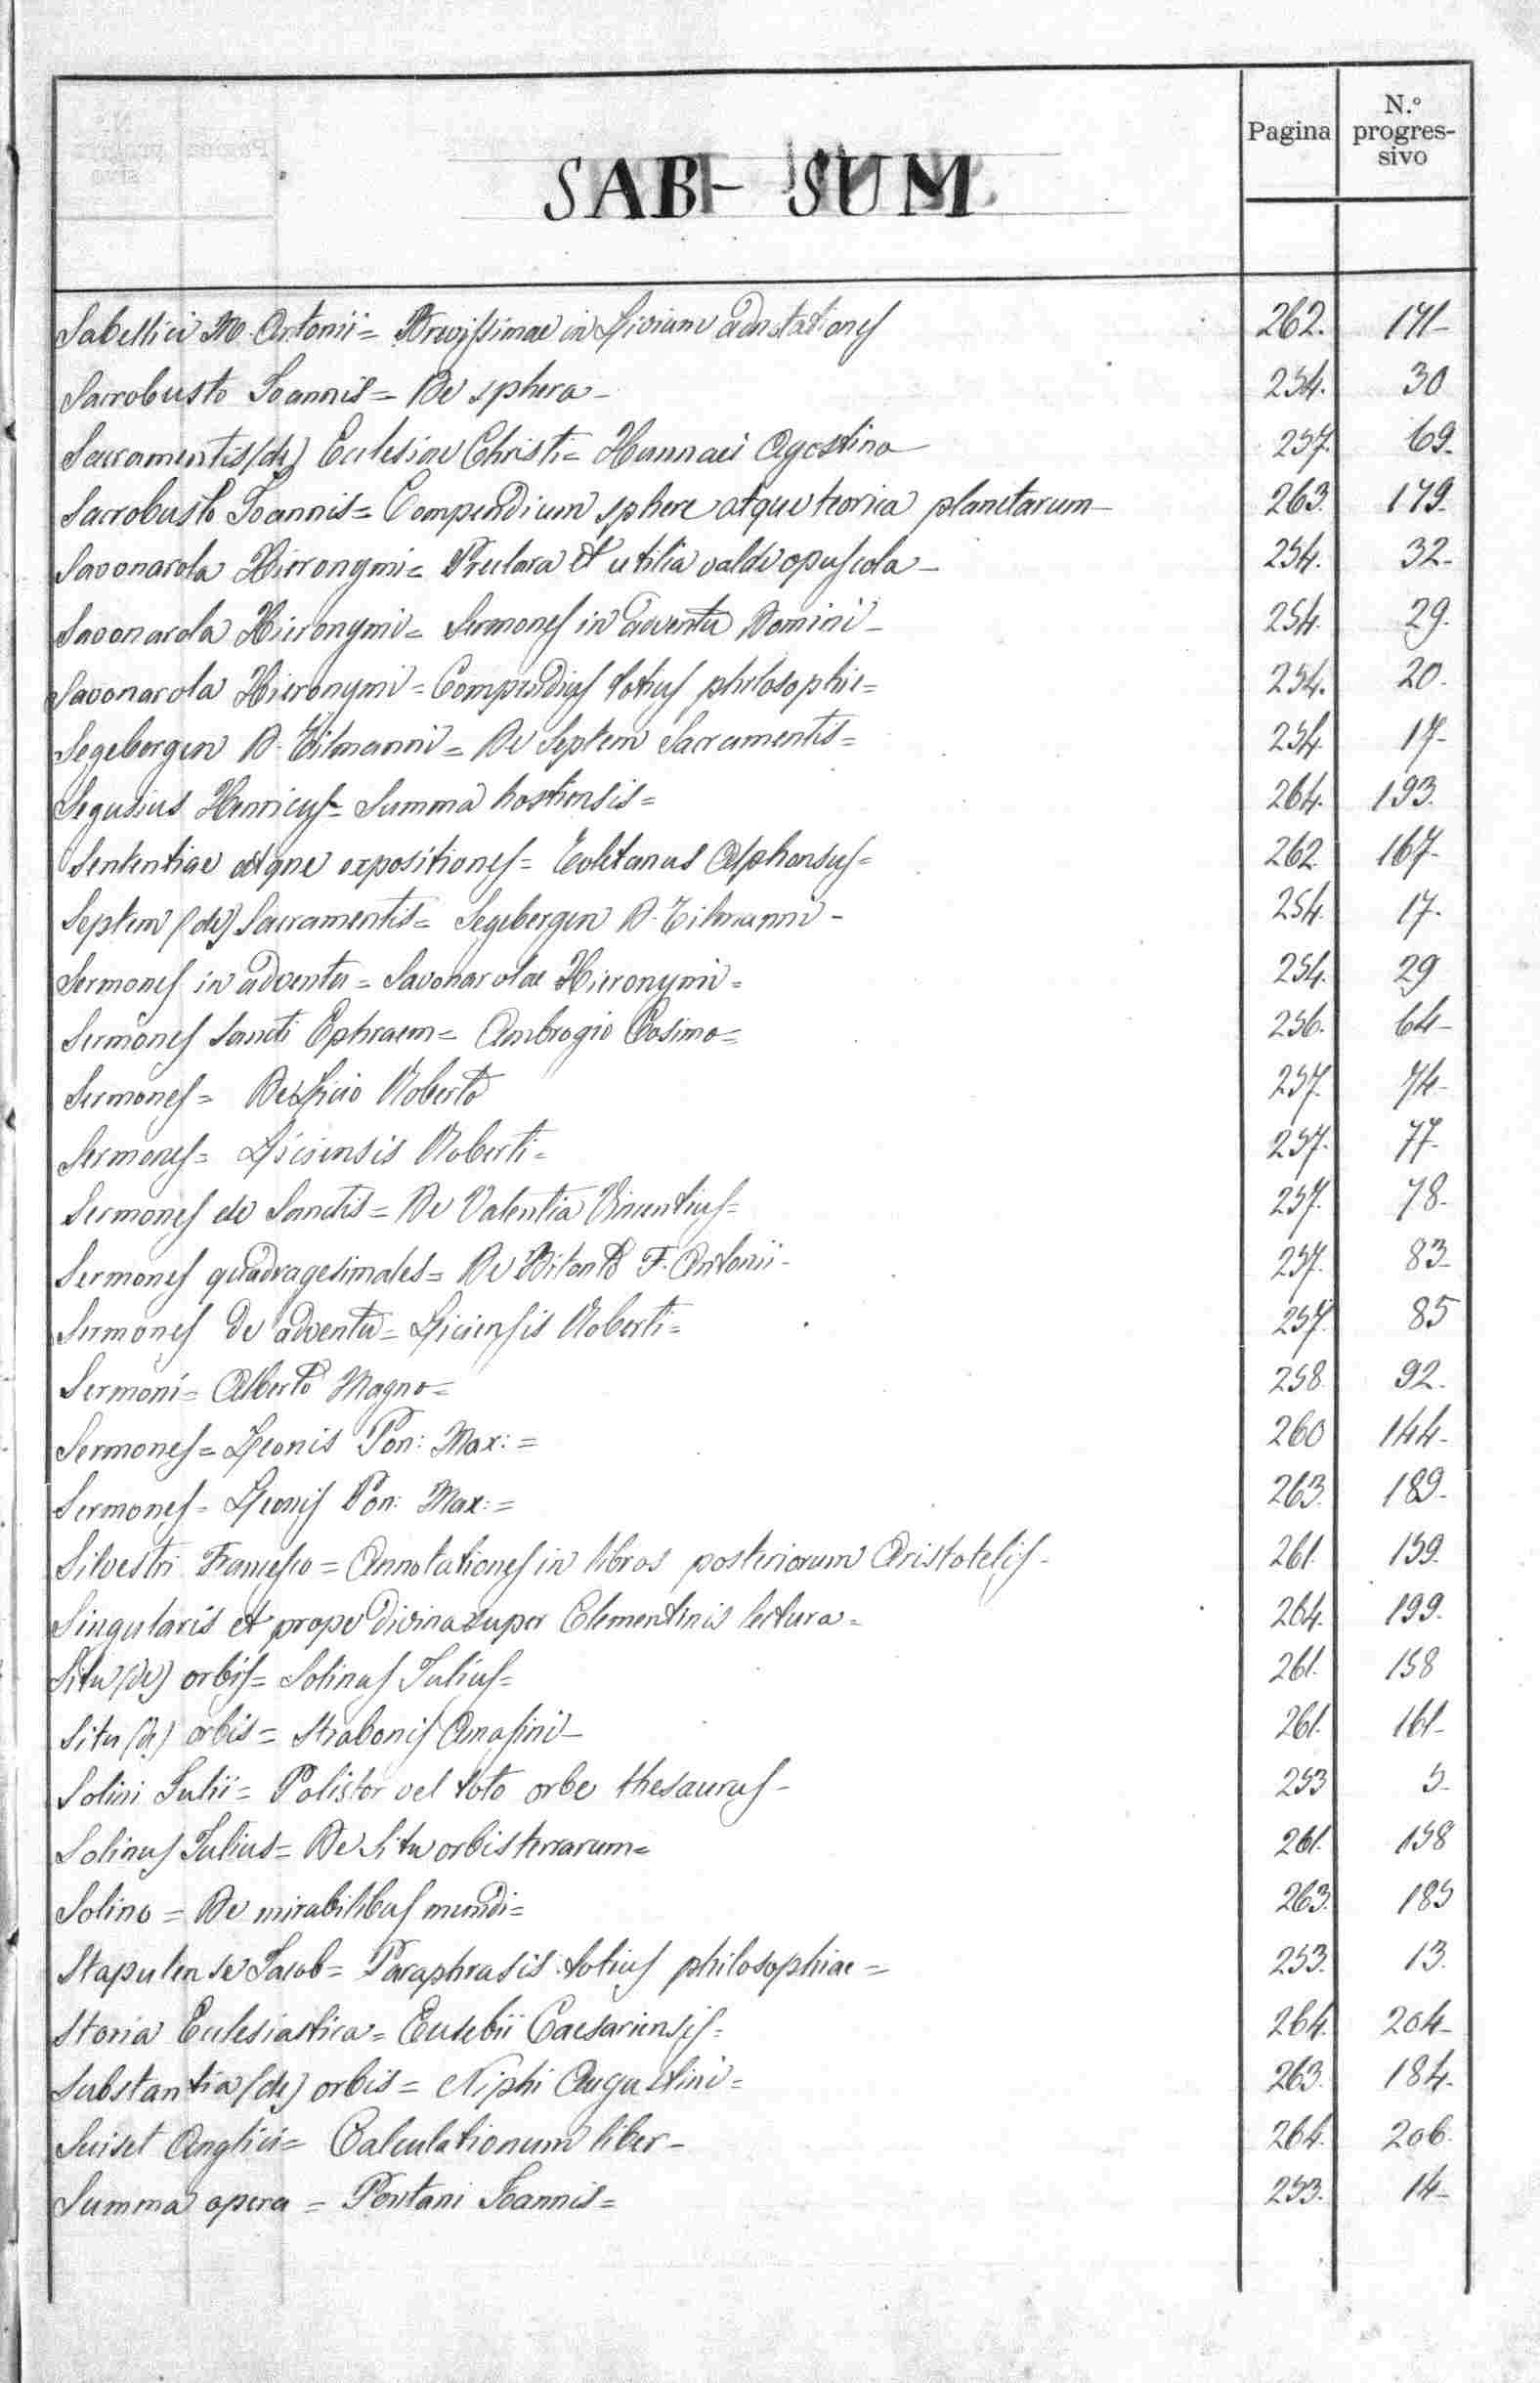 Pagina N.º progres-sivo
SAB - SUM
Sabellici M. Antonii = Brevissimae in Livium adnotationes 262. 171-
Sacrobusto Ioannis = De sphera - 254. 30
Sacramentis (de) Ecclesiae Christi = Hunnaei Agostino 257. 69.
Sacrobusto Ioannis = Compendium sphere atque teorica planetarum - 263. 179.
Savonarola Hieronymi = Preclara et utilia valde opuscola - 254. 32.
Savonarola Hieronymi = Sermones in adventu Domini - 254. 29.
Savonarola Hieronymi = Compendius totius philosophie = 254. 20.
Segebergen D. Tilmanni = De Septem Sacramentis = 254. 17-
Segusius Henricus = Summa hostiensis = 264. 193.
Sententiae atque expositiones = Toletanus Alphonsus = 262 167-
Septem (de) Sacramentis = Segebergen D. Tilmanni - 254. 17.
Sermones in adventu = Savonarolae Hieronymi = 254. 29
Sermones Sancti Ephraem = Ambrogio Cosimo = 256. 64-
Sermones = De Licio Roberto 257. 74-
Sermones = Liciensis Roberti = 257. 77-
Sermones de Sanctis = De Valentia Vincentius = 257. 78.
Sermones quadragesimales = De Bitonto F. Antonii - 257. 83-
Sermones de adventu = Liciensis Roberti = 257. 85
Sermoni = Alberto Magno = 258 92.
Sermones = Leonis Pon: Max: = 260 144-
Sermones = Leonis Pon: Max: = 263. 189.
Silvestri Francesco = Annotationes in libros posteriorum Aristotelis - 261. 159.
Singularis et prope divina super Clementinis lectura = 264. 199.
Situ (de) orbis = Solinus Iulius = 261. 158
Situ (de) orbis = Strabonis Amasini - 261. 161-
Solini Iulii = Polistor vel toto orbe thesaurus - 253 5-
Solinus Iulius = De Situ orbis terrarum = 261. 158
Solino = De mirabilibus mundi = 263. 185
Stapulense Iacob = Paraphrasis totius philosophiae = 253. 13.
Storia Ecclesiastica = Eusebii Caesariensis = 264. 204-
Substantia (de) orbis = Niphi Augustini = 263. 184.
Suiset Anglici = Calculationum liber - 264. 206.
Summa opera = Pontani Ioannis = 253. 14-